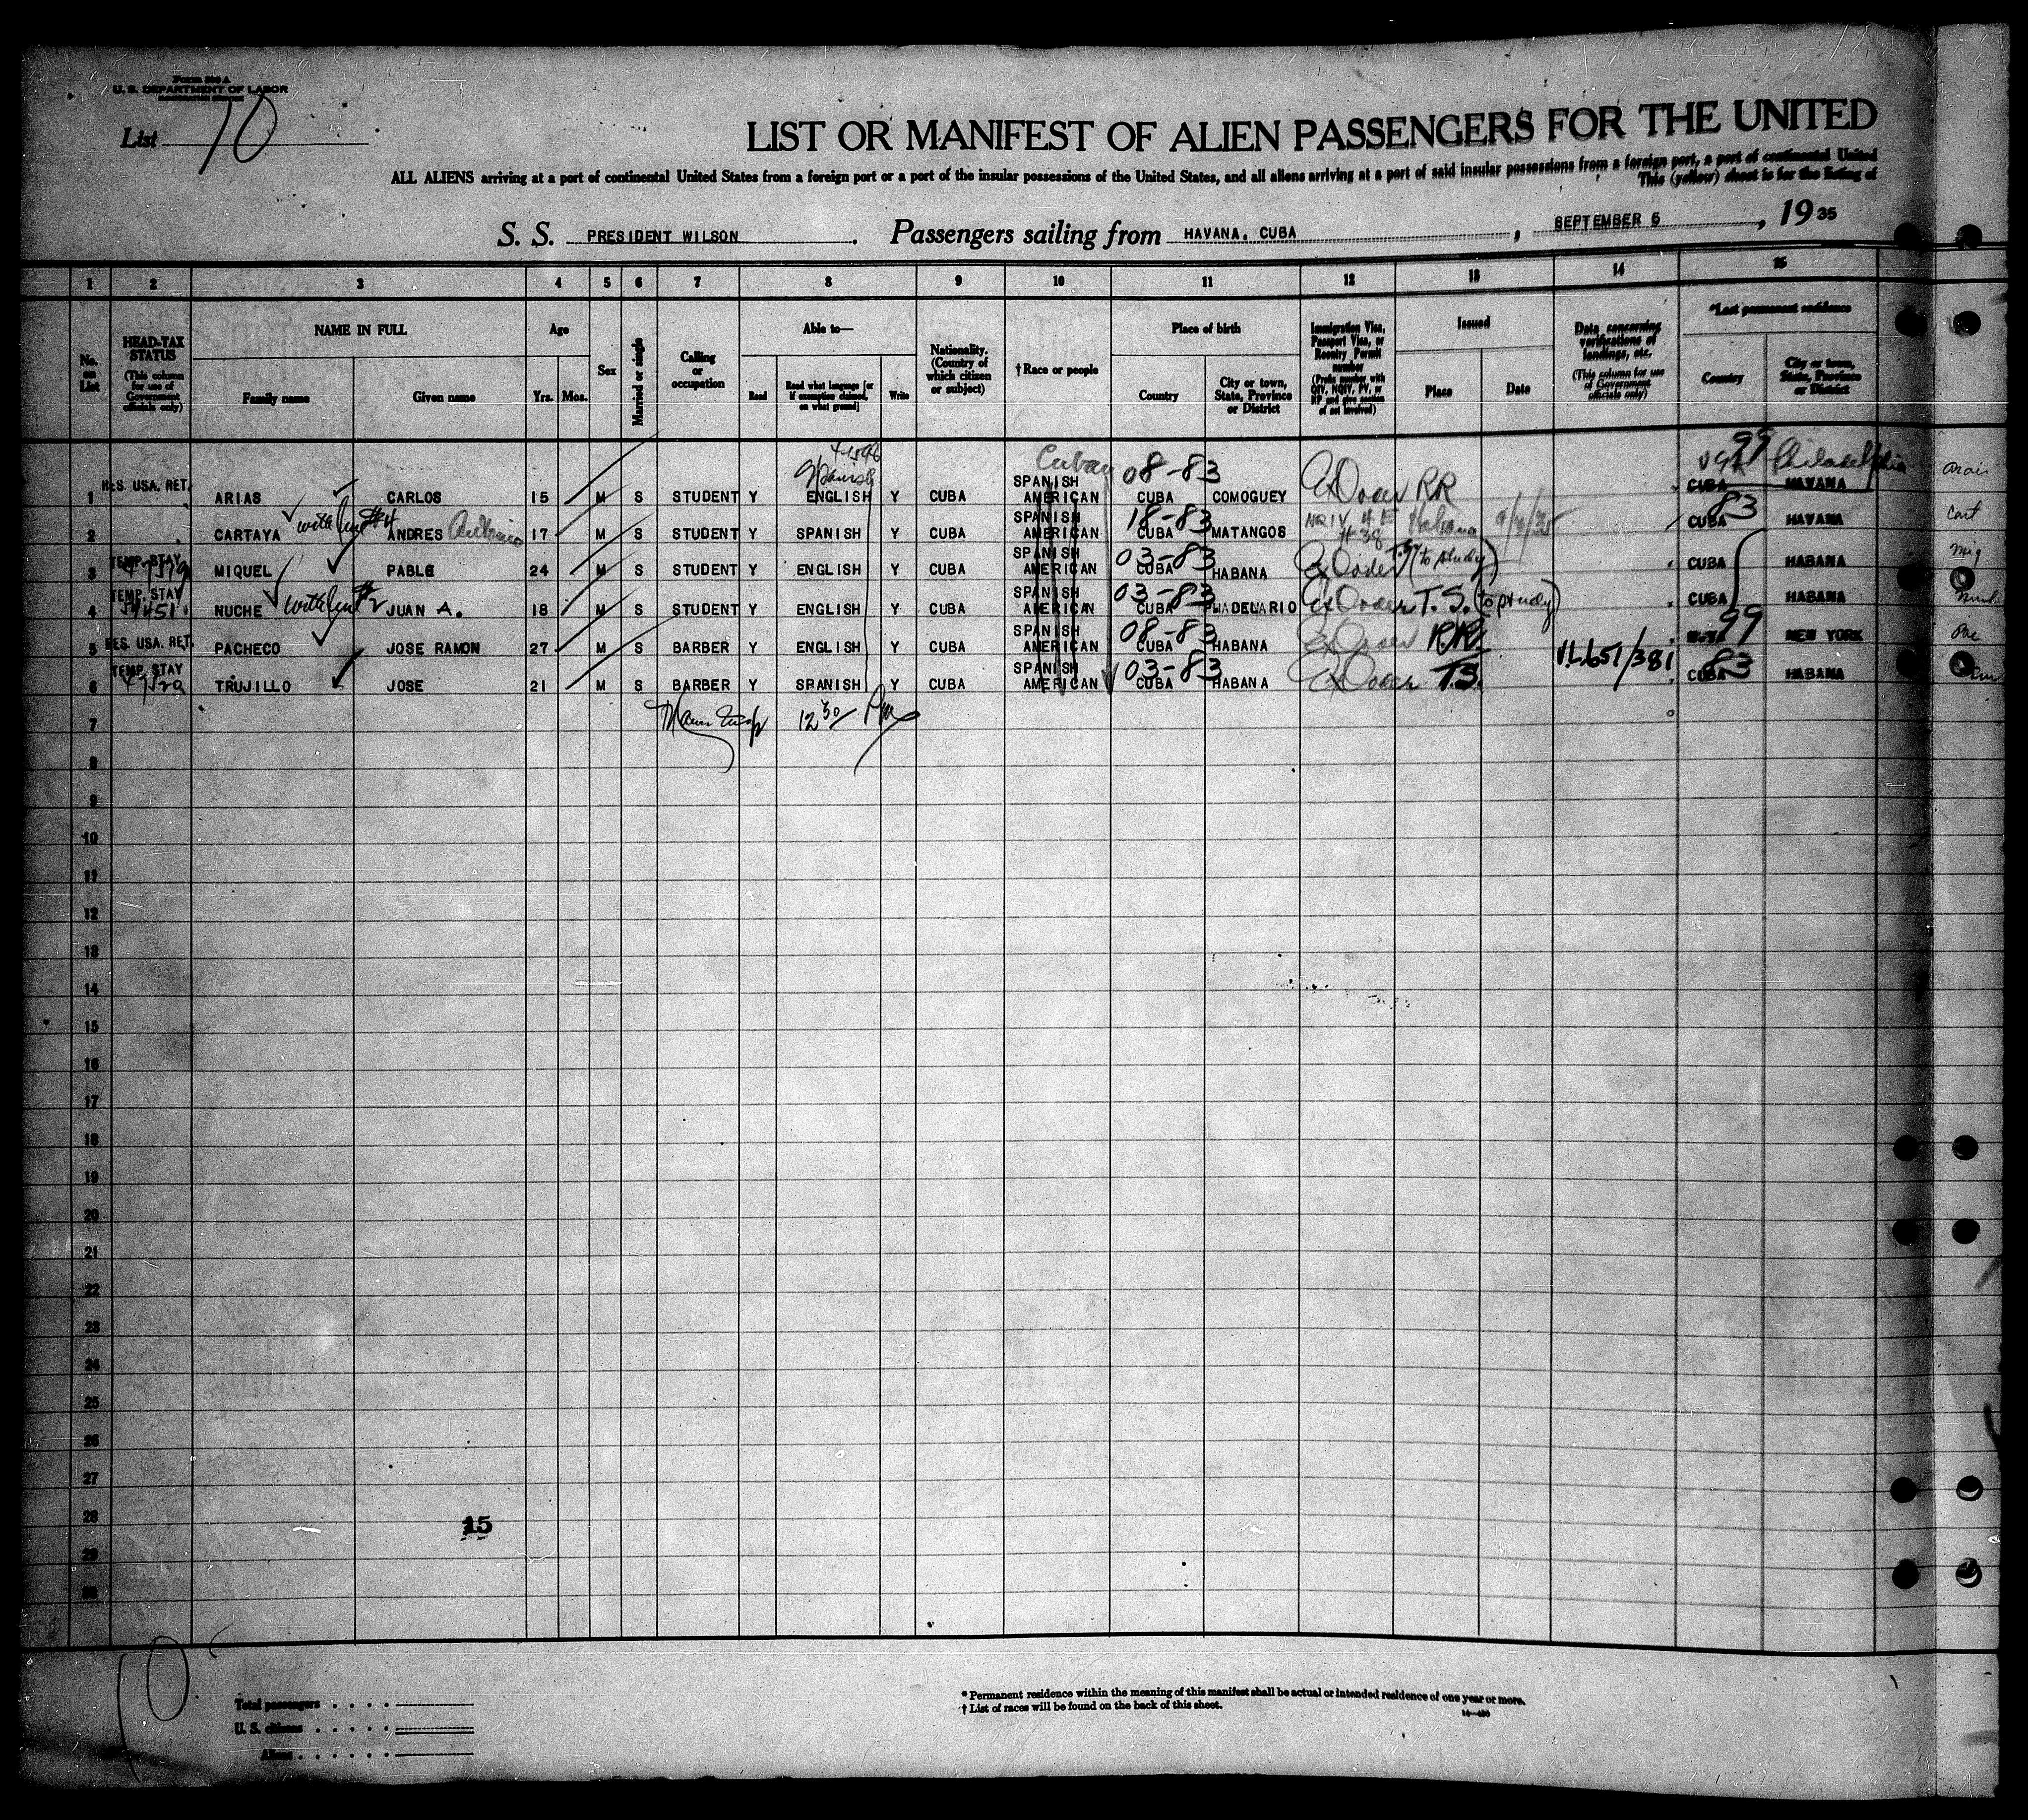 Form 500 A
U. S. DEPARTMENT OF LABOR
List 10
LIST OR MANIFEST OF ALIEN PASSENGERS FOR THE UNITED
ALL ALIENS arriving at a port of continental United States from a foreign port or a part of the insular possessions of the United States, and all aliens arriving at a port of said insular possessions from a foreign port, a part of continental United
This (yellow) sheet is for the listing of
S. S. PRESIDENT WILSON. Passengers sailing from HAVANA, CUBA, SEPTEMBER 5, 1935
1 2 3 4 5 6 7 8 9 10 11 12 13 14 15
No. on List
HEAD-TAX STATUS (This column for use of Government officials only)
NAME IN FULL Family name Given name
Age Yrs. Mos.
Sex
Married or single
Calling or occupation
Able to— Read Read what language [or if exemption claimed, on what ground] Write
Nationality. (Country of which citizen or subject)
†Race or people
Place of birth Country City or town, State, Province or District
Immigration Visa, Passport Visa, or Reentry Permit number (Prefix number with QIV, NQIV, PV, or RP and give section of act involved)
Issued Place Date
Data concerning verifications of landings, etc. (This column for use of Government officials only)
*Last permanent residence Country City or town, State, Province or District
Spanish Cuban 08-83 99 USA Philadelphia
1 RES. USA. RET. ARIAS CARLOS 15 M S STUDENT Y ENGLISH Y CUBA SPANISH AMERICAN CUBA COMOGUEY Ex Order RR CUBA HAVANA
2 CARTAYA with line #4 ANDRES Antonio 17 M S STUDENT Y SPANISH Y CUBA SPANISH AMERICAN 18-83 CUBA MATANGOS Habana CUBA 83 HAVANA
3 TEMP. STAY MIQUEL PABLE 24 M S STUDENT Y ENGLISH Y CUBA SPANISH AMERICAN 03-83 CUBA HABANA Ex Order T.S. (to study) CUBA HABANA
4 TEMP. STAY NUCHE with line #2 JUAN A. 18 M S STUDENT Y ENGLISH Y CUBA SPANISH AMERICAN 03-83 CUBA Ex Order T.S. (to study) CUBA HABANA
5 RES. USA. RET. PACHECO JOSE RAMON 27 M S BARBER Y ENGLISH Y CUBA SPANISH AMERICAN 08-83 CUBA HABANA Ex Order RR 99 NEW YORK
6 TEMP. STAY TRUJILLO JOSE 21 M S BARBER Y SPANISH Y CUBA SPANISH AMERICAN 03-83 CUBA HABANA Ex Order T.S. CUBA 83 HABANA
7 12 30 Pm
8
9
10
11
12
13
14
15
16
17
18
19
20
21
22
23
24
25
26
27
28
15
29
30
10
Total passengers
U. S. citizens
Aliens
* Permanent residence within the meaning of this manifest shall be actual or intended residence of one year or more.
† List of races will be found on the back of this sheet.